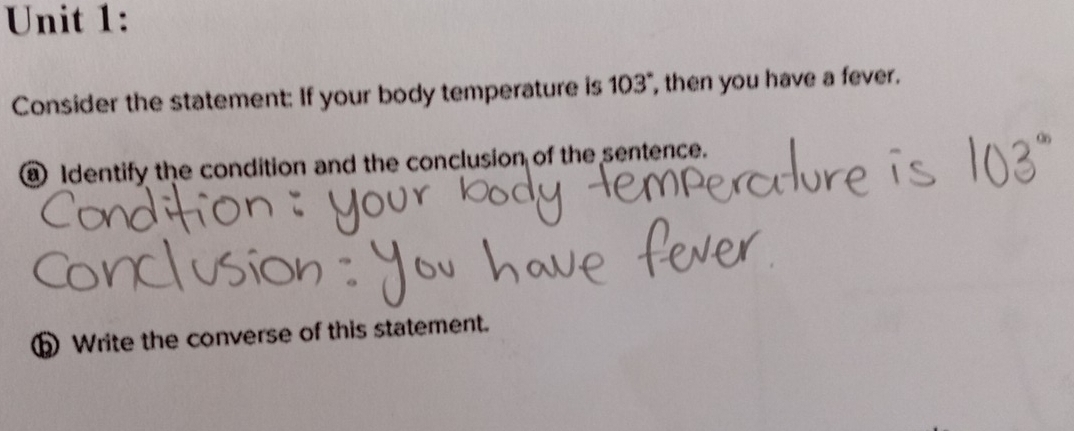 Unit 1:
Consider the statement: If your body temperature is 103°, then you have a fever.
ⓐ Identify the condition and the conclusion of the sentence.
Condition: your body temperature is 103°
Conclusion: you have fever.
ⓑ Write the converse of this statement.